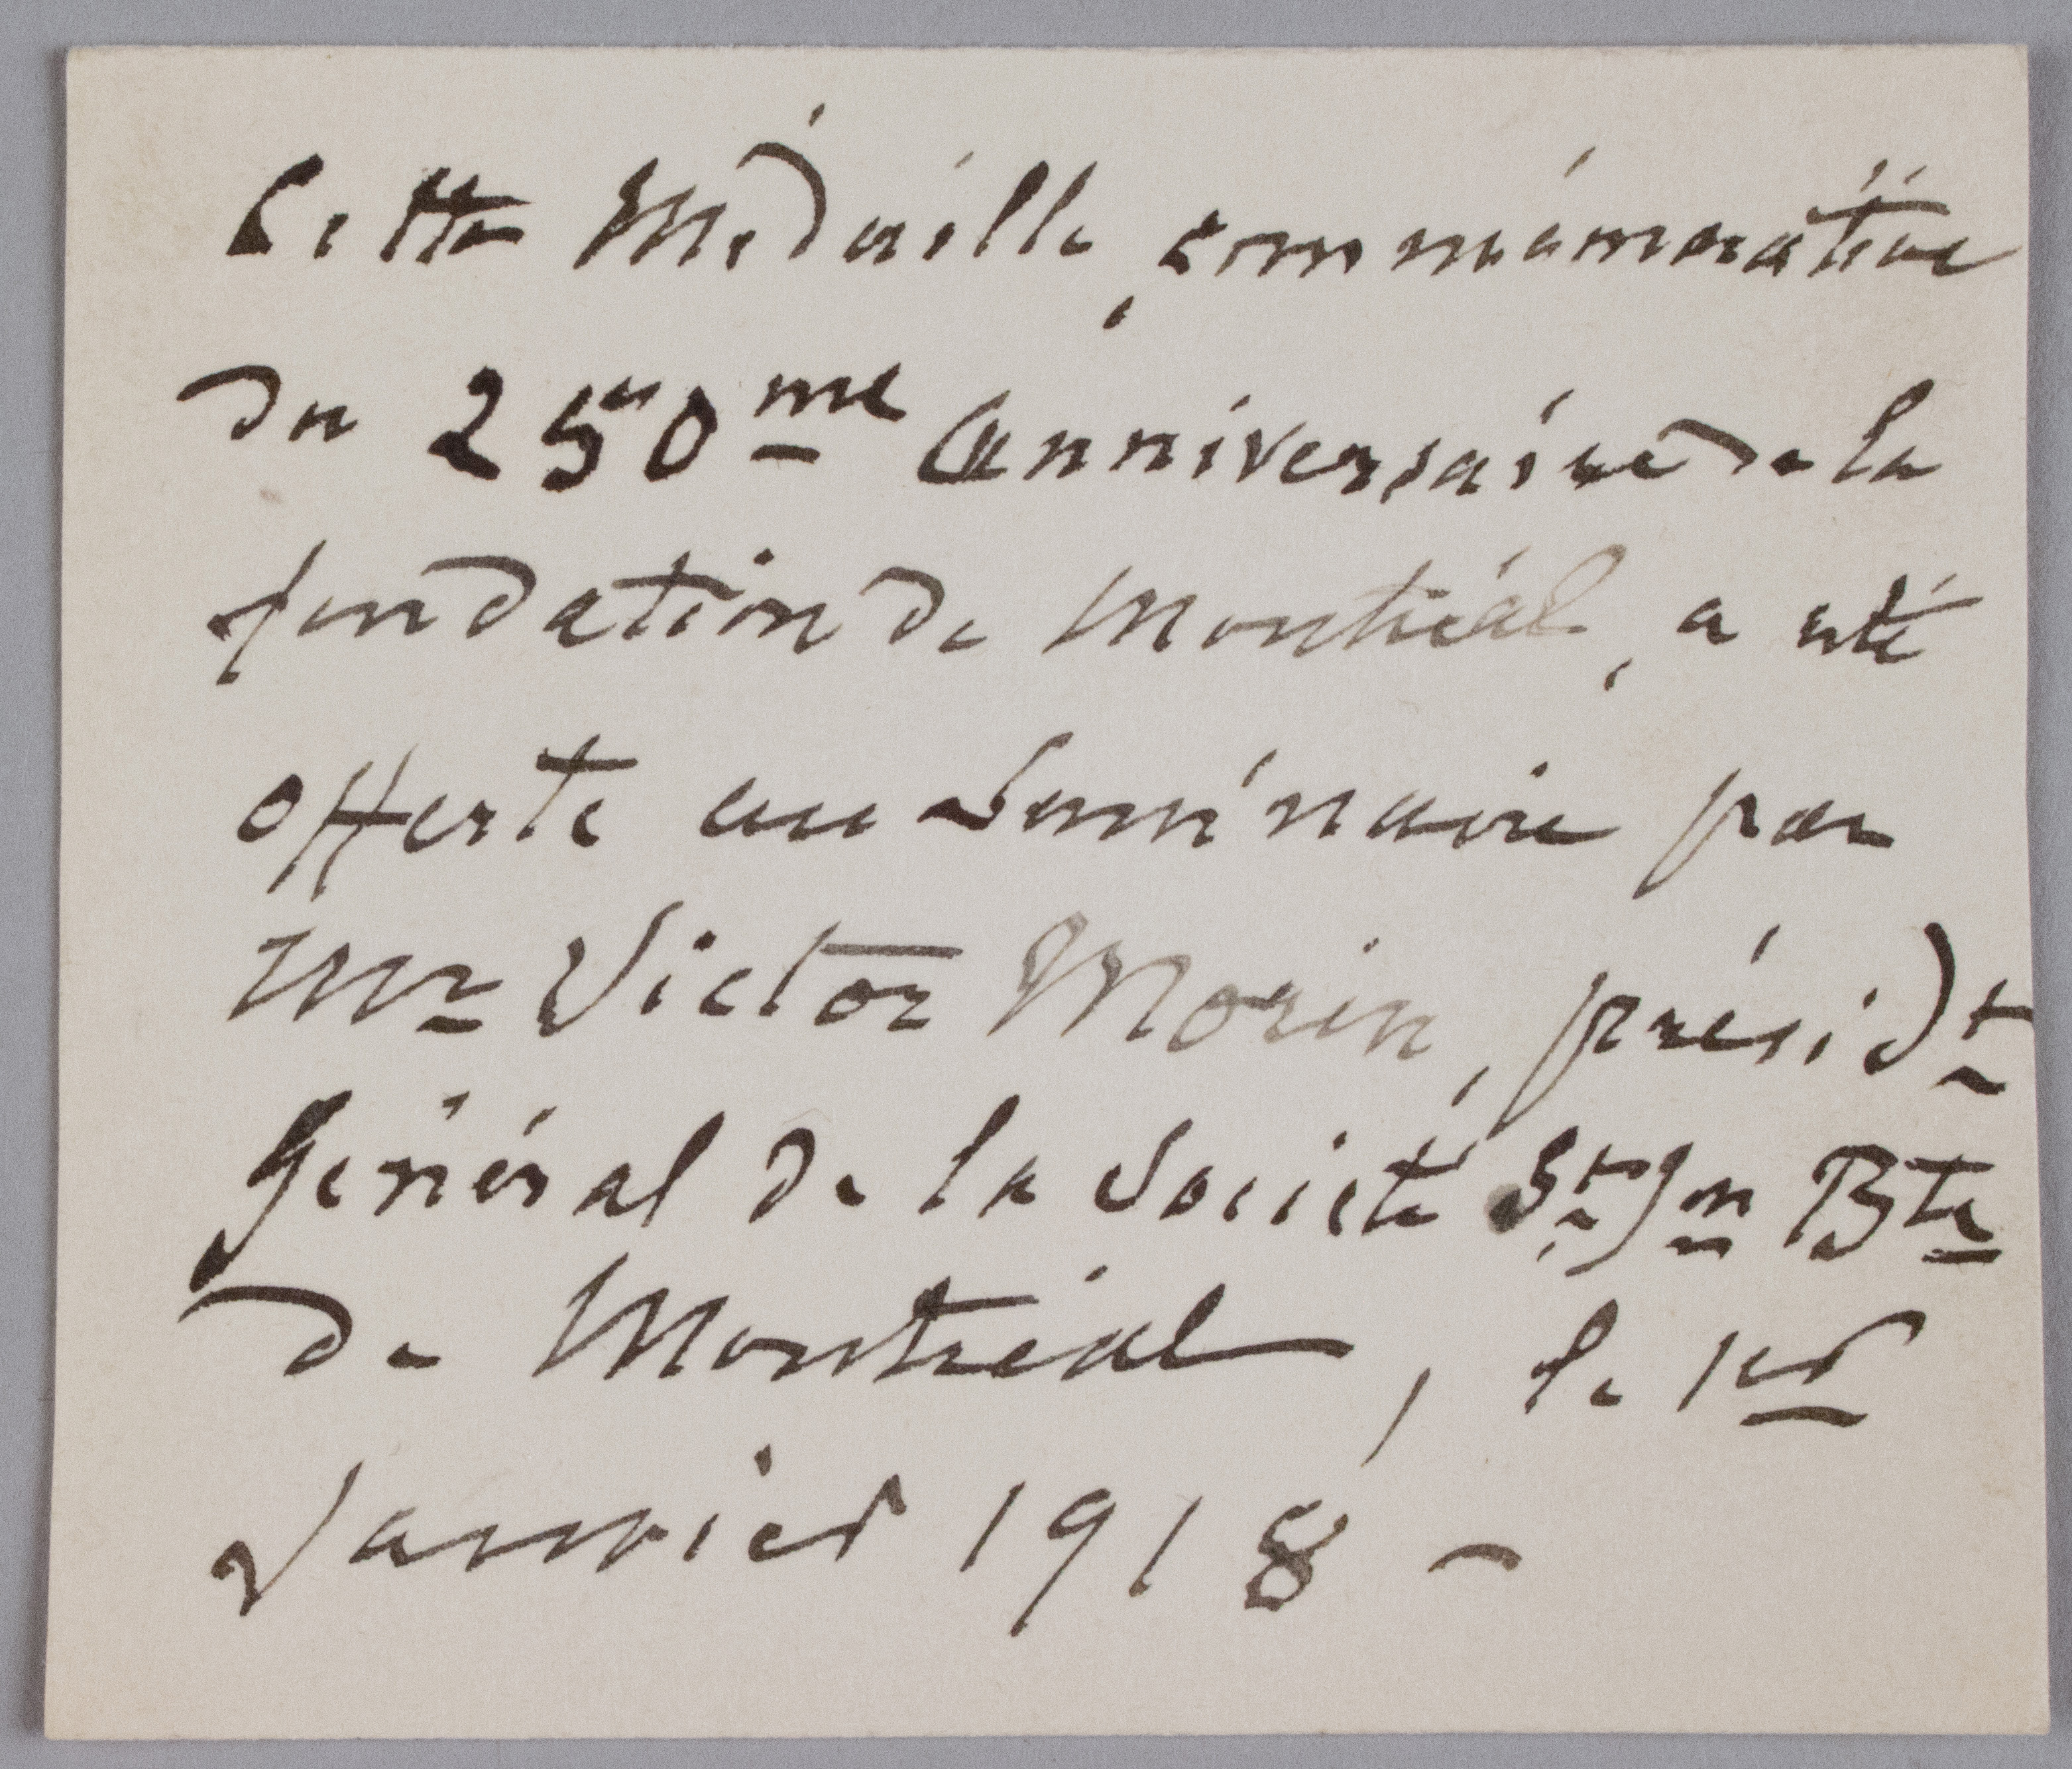 Cette Médaille, commémorative
du 250me Anniversaire de la
fondation de Montréal, a été
offerte au Séminaire par
Mr Victor Morin, présidt
Général de la Société St Jn Bte
de Montréal, le 1er
Janvier 1918 -